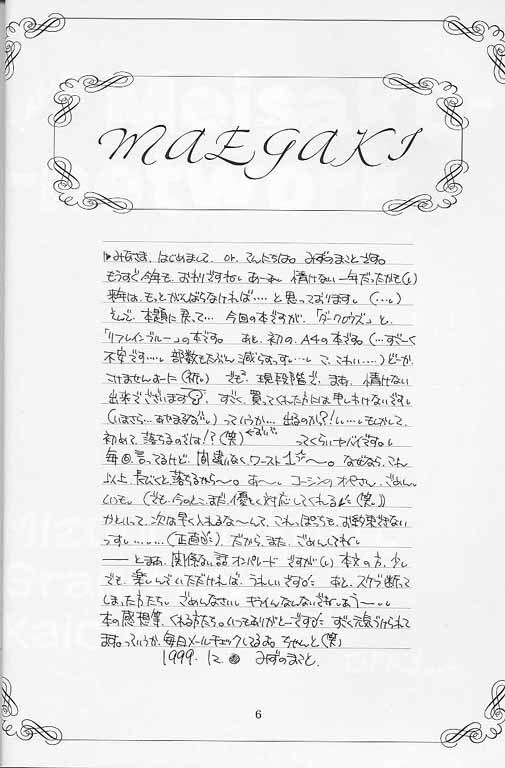 MAEGAKI
みなさま、はじめまして、or、こんにちは。みずのまことです。
もうすぐ今年も、おわりですねぃ。あーあ、情けない一年だったかも(し)
来年は、もっとがんばらなければ‥‥と思っております。(‥し)
そんで、本題に戻って… 今回の本ですが、「ダークロウズ」と、
「リフレインブルー」の本です。 あと、初の、A4の本です。(…すごーく
不安です…し 部数もたぶん減らすっすし…し こ、こわい…)どーか、
こけませんよーに(祈)。 でも、現段階で、まあ、情けない
出来でございます?。すごく、買ってくれた方には申しわけないですし
(いまさら…あやまるな")っていうか… 出るのか?!し…もしかして、
初めて、落ちるのでは!?(笑) ってくらいヤバイです。
毎回、言ってるけど、間違いなく、ワースト1☆〜。なぜなら、これ
以上、長びくと、落ちるから〜。あ〜、コーシンのオヤさん、ごめん
いつも。(でも、今のとこ、まだ、優しく対応してくれるし(笑))
かといって、次は早く入れるな〜んて、これっぽっちも、お約束できない
っすし…(正直) だから、また、ごめんしてねし
―― とまあ、関係ない話オンパレードですが(し) 本文の方、少し
でも、楽しんでいただければ、うれしいです あと、スケブ断って
しまった方たちし ごめんなさいし
本の感想等、くれる方たち。いつもありがとーです すごく元気づけられて
ます。っていうか、毎日メールチェックしてるよ。ちゃんと(笑)
1999. 12. みずのまこと.
6